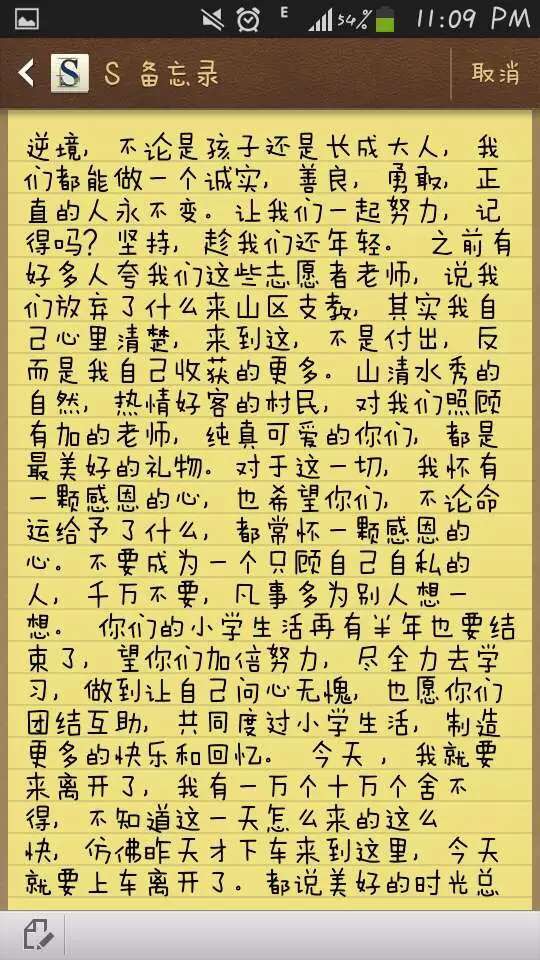 E 54% 11:09 PM
S S 备忘录 取消
逆境，不论是孩子还是长成大人，我
们都能做一个诚实，善良，勇敢，正
直的人永不变。让我们一起努力，记
得吗？坚持，趁我们还年轻。 之前有
好多人夸我们这些志愿者老师，说我
们放弃了什么来山区支教，其实我自
己心里清楚，来到这，不是付出，反
而是我自己收获的更多。山清水秀的
自然，热情好客的村民，对我们照顾
有加的老师，纯真可爱的你们，都是
最美好的礼物。对于这一切，我怀有
一颗感恩的心，也希望你们，不论命
运给予了什么，都常怀一颗感恩的
心。不要成为一个只顾自己自私的
人，千万不要，凡事多为别人想一
想。 你们的小学生活再有半年也要结
束了，望你们加倍努力，尽全力去学
习，做到让自己问心无愧，也愿你们
团结互助，共同度过小学生活，制造
更多的快乐和回忆。 今天 ，我就要
来离开了，我有一万个十万个舍不
得，不知道这一天怎么来的这么
快，仿佛昨天才下车来到这里，今天
就要上车离开了。都说美好的时光总